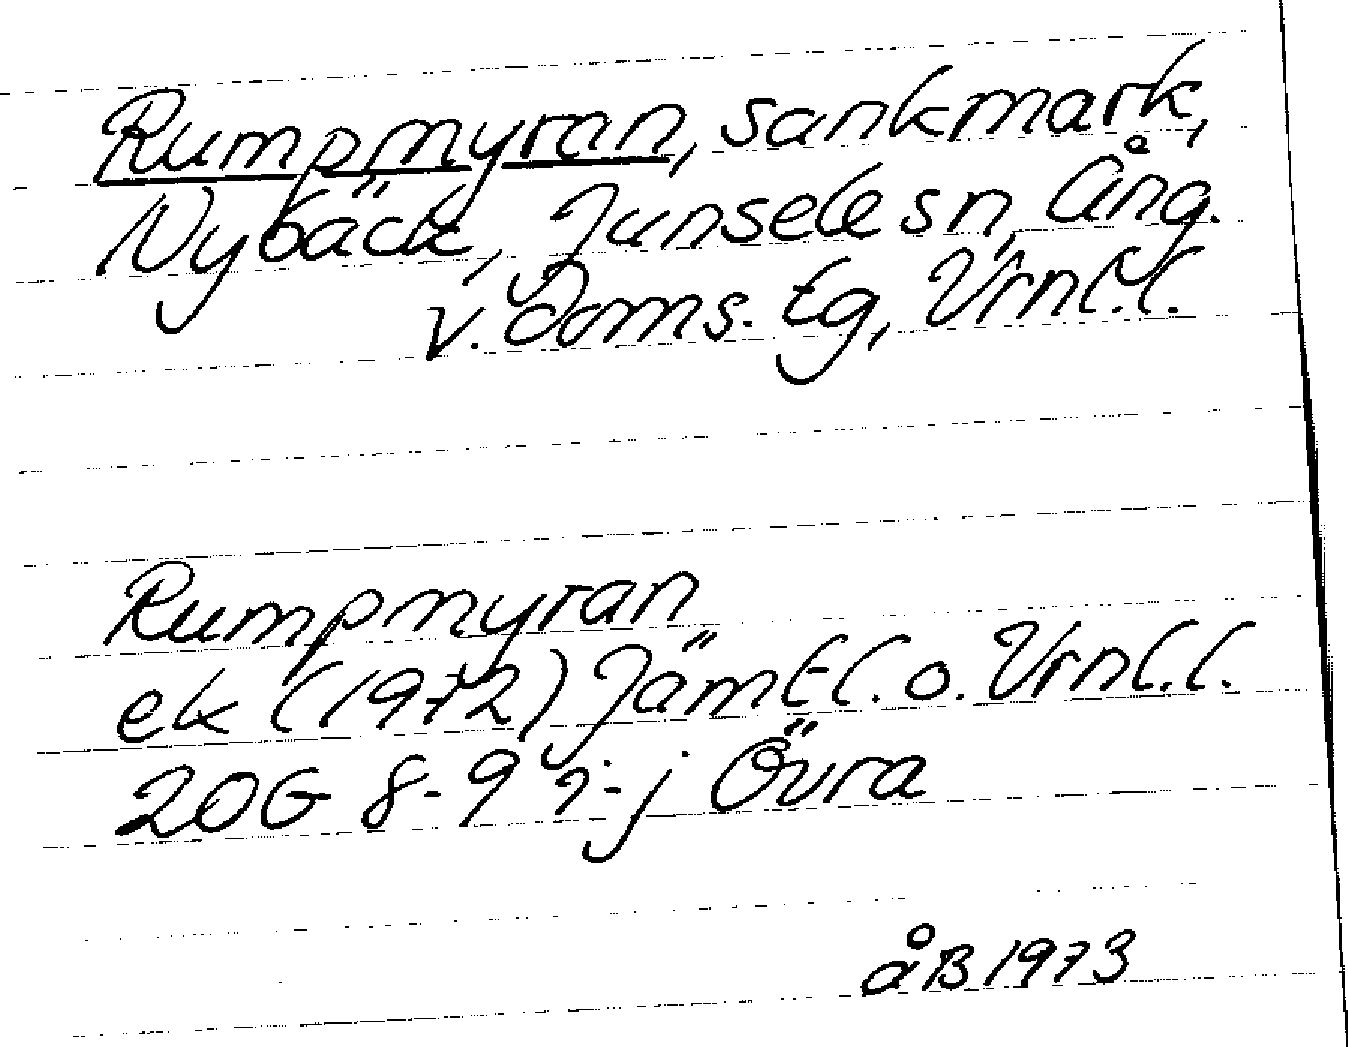 Rumpmyran, sankmark,
Nybäck, Junsele sn, Ång.
V. Doms. tg, Vrnl. l.
Rumpmyran
ek (1972) Jämtl. o. Vrnl. l.
20G 8-9 i-j Övra
åB 1973